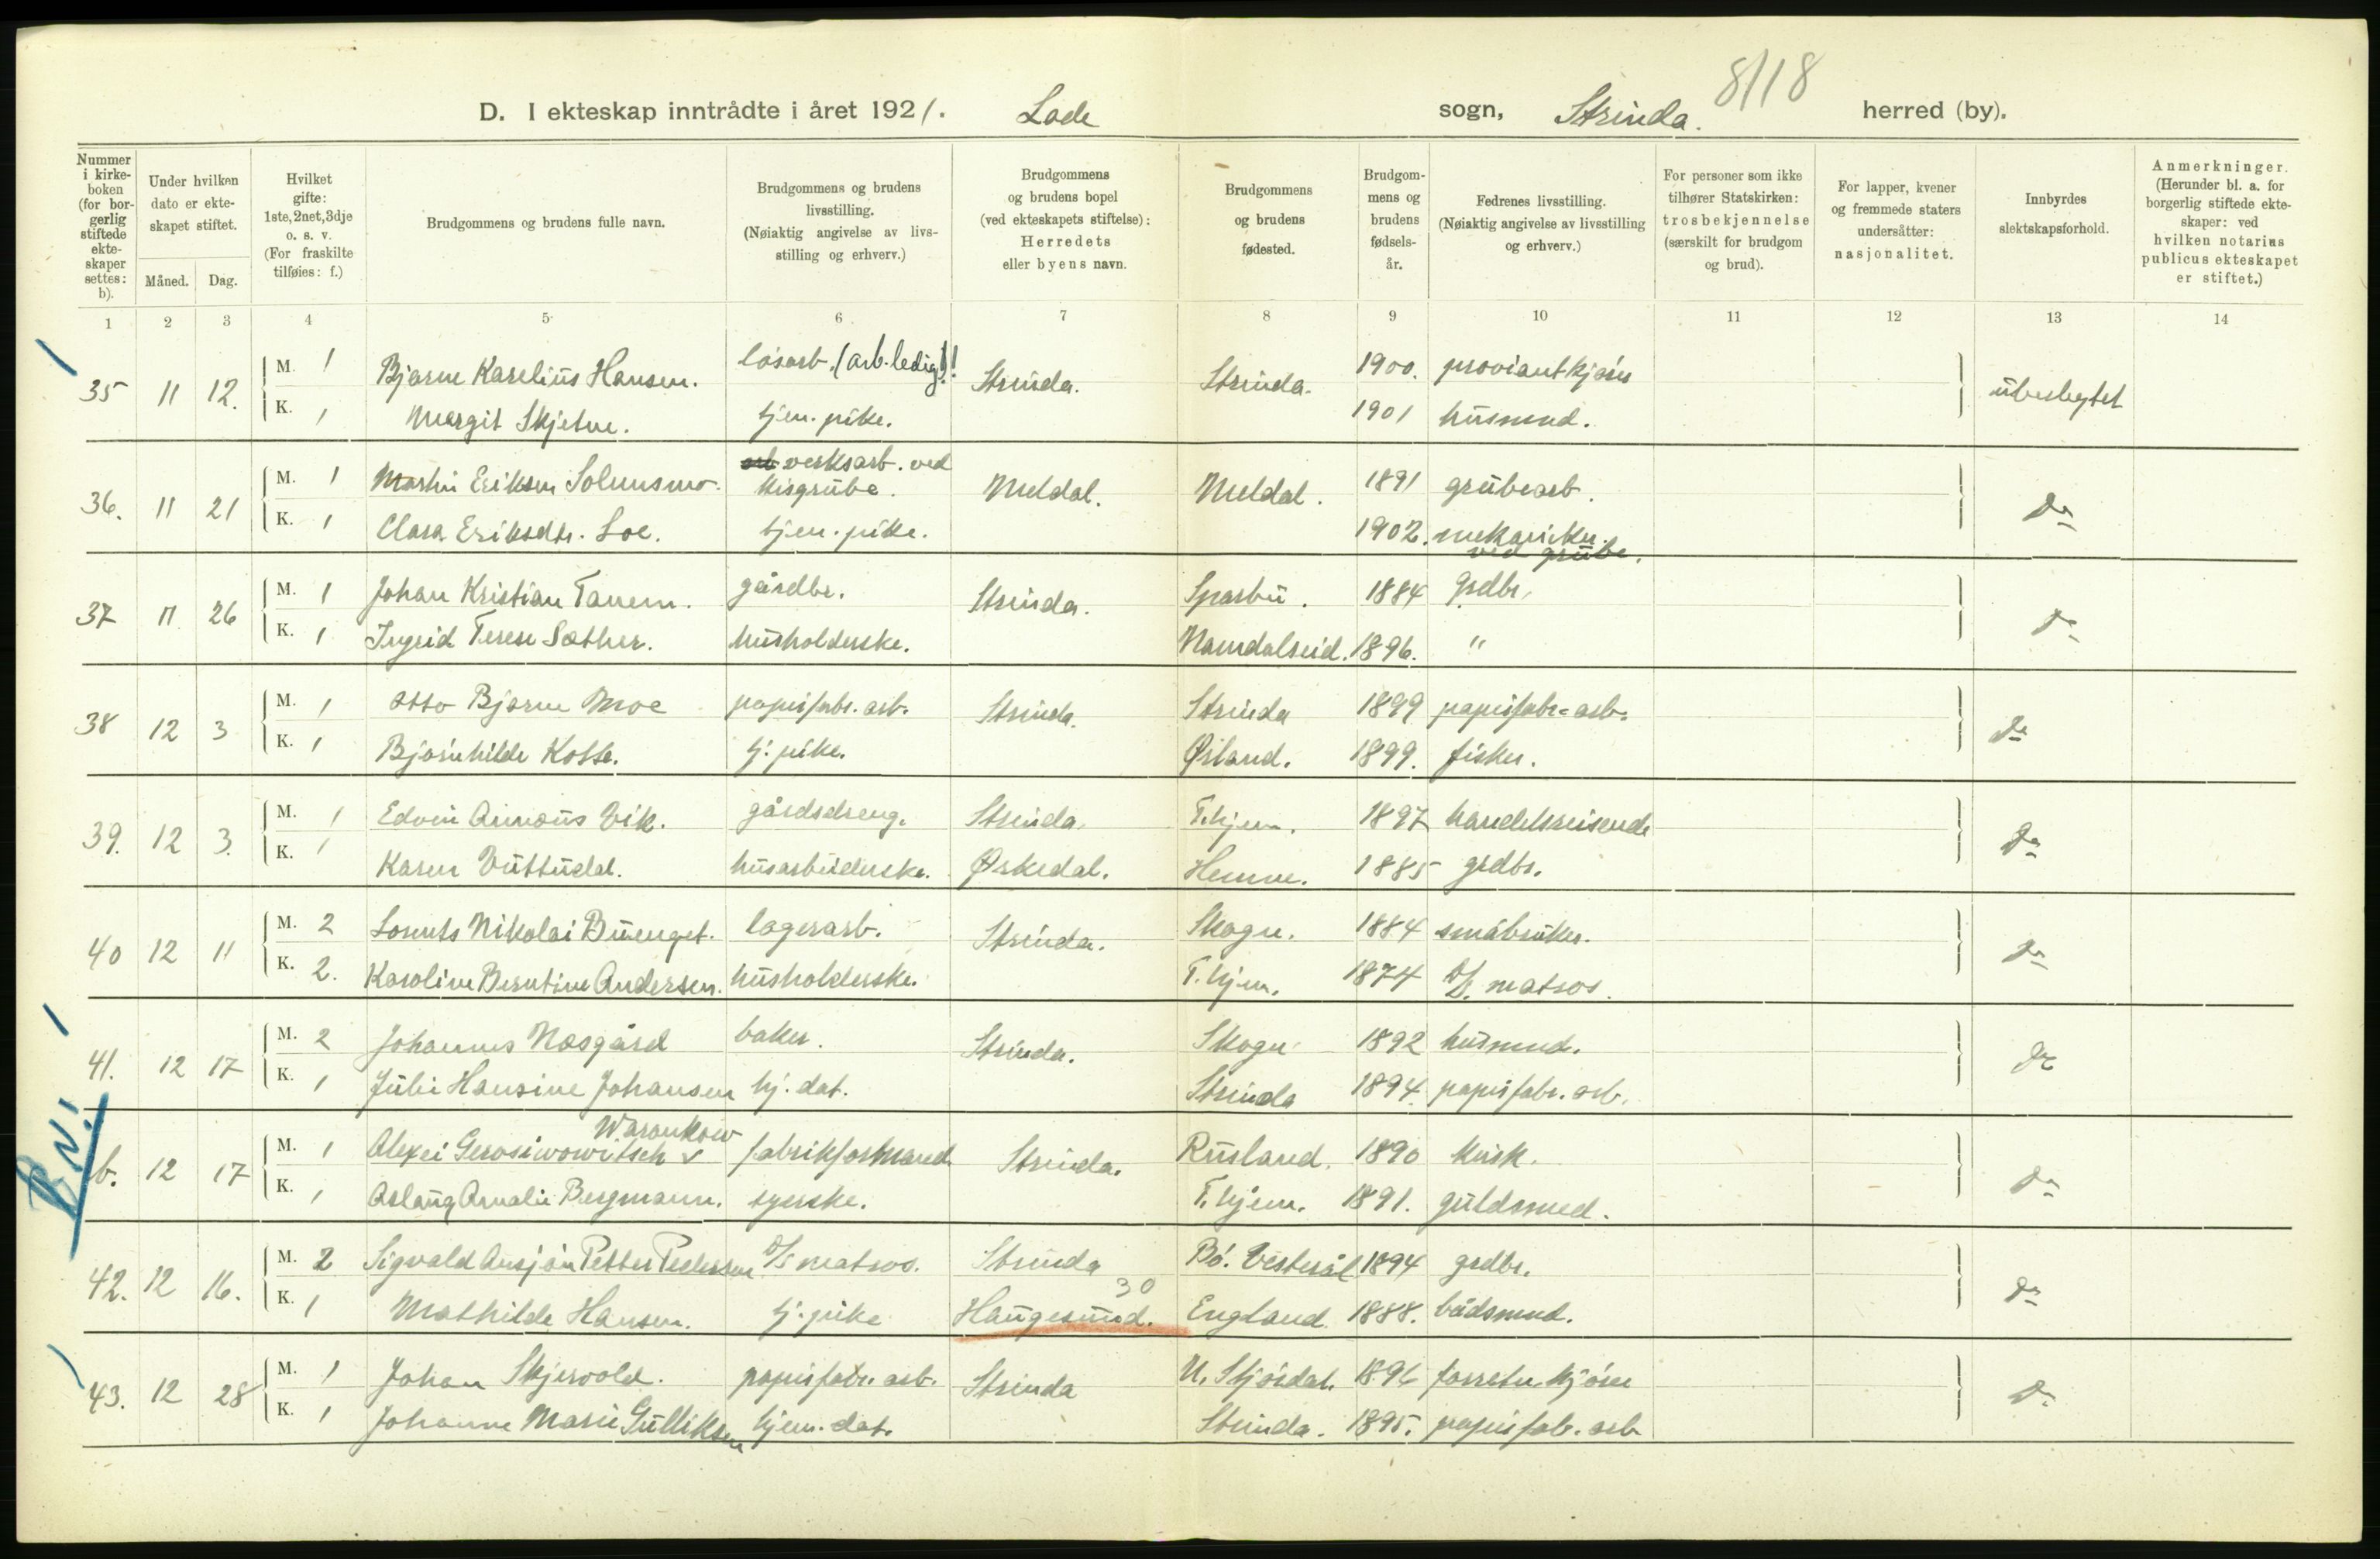 8/18
D. I ekteskap inntrådte i året 1921. Lade sogn, Strinda. herred (by).
Nummer i kirkeboken (for borgerlig stiftede ekteskaper settes: b).
Under hvilken dato er ekteskapet stiftet.
Måned. Dag.
Hvilket gifte: 1ste, 2net, 3dje o. s. v. (For fraskilte tilføies: f.)
Brudgommens og brudens fulle navn.
Brudgommens og brudens livsstilling. (Nøiaktig angivelse av livsstilling og erhverv.)
Brudgommens og brudens bopel (ved ekteskapets stiftelse): Herredets eller byens navn.
Brudgommens og brudens fødested.
Brudgommens og brudens fødselsår.
Fedrenes livsstilling. (Nøiaktig angivelse av livsstilling og erhverv.)
For personer som ikke tilhører Statskirken: trosbekjennelse (særskilt for brudgom og brud).
For lapper, kvener og fremmede staters undersåtter: nasjonalitet.
Innbyrdes slektskapsforhold.
Anmerkninger. (Herunder bl. a. for borgerlig stiftede ekteskaper: ved hvilken notarius publicus ekteskapet er stiftet.)
1 2 3 4 5 6 7 8 9 10 11 12 13 14
35 11 12. M. 1 Bjarne Karelius Hansen. løsarb. (arb. ledig)! Strinda. Strinda. 1900. proviantkjører ubeslegtet
K. 1 Margit Skjetne. tjen. pike. 1901 husmnd.
36. 11 21 M. 1 Martin Eriksen Solmsmo. arb verksarb. ved kisgrube. Meldal. Meldal. 1891 grubearb. Do
K. 1 Clara Eriksdtr. Loe. tjen. pike. 1902. mekaniker ved grube.
37 11 26 M. 1 Johan Kristian Tanem. gårdbr. Strinda. Sparbu. 1884 grdbr. Do
K. 1 Ingrid Terese Sæther. husholderske. Namdalseid. 1896. "
38 12 3 M. 1 Otto Bjarne Moe papirfabr. arb. Strinda. Strinda 1899 papirfabr. arb. Do
K. 1 Bjørnhilde Kotte. tj. pike. Ørland. 1899. fisker.
39. 12 3. M. 1 Edvin Arnous Vik. gårdsdreng. Strinda. T.hjem. 1897 handelsreisende Do
K. 1 Karen Vuttudal. husarbeiderske. Ørkedal. Hemne. 1885 grdbr.
40 12 11 M. 2 Lorents Nikolai Buenget. lagerarb. Strinda. Skogn. 1884 småbruker. Do
K. 2. Karoline Berntine Andersen. husholderske. T.hjem. 1874 D/S. matros.
41. 12 17 M. 2 Johannes Næsgård baker. Strinda. Skogn 1892 husmnd. Do
K. 1 Julie Hansine Johansen hj. dat. Strinda 1894. papirfabr. arb.
B.N.!
b. 12 17 M. 1 Alexei Gerosiwowitsch Waronkow fabrikformand Strinda. Rusland. 1890 kusk. Do
K. 1 Aslaug Amalie Bergmann. syerske. T.hjem. 1891. guldsmed.
42. 12 16. M. 2 Sigvald Ansjön Petter Pedersen D/S matros. Strinda Bø. Vesterål 1894 grdbr. Do
30
K. 1 Mathilde Hansen. tj. pike Haugesund. England. 1888. bådsmnd.
43. 12 28 M. 1 Johan Skjervold. papirfabr. arb. Strinda N. Stjørdal. 1896 forretn. kjører Do
K. 1 Johanne Marie Gulliksen hjem. dat. Strinda. 1895. papirfab. arb